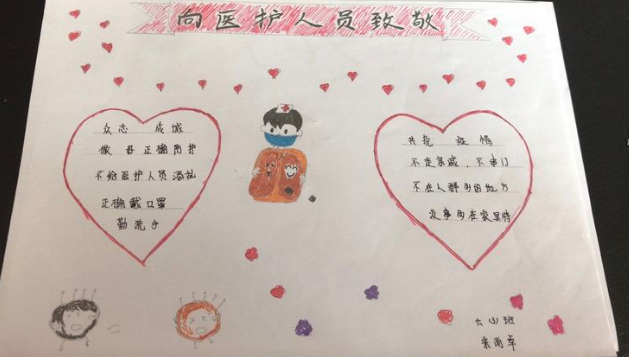 向医护人员致敬
众志 成城
做好正确防护
不给医护人员添乱
正确戴口罩
勤洗手
共抗 疫情
不走亲戚，不串门
不在人群多的地方
没事多在家里待
六(3)班
雨卓